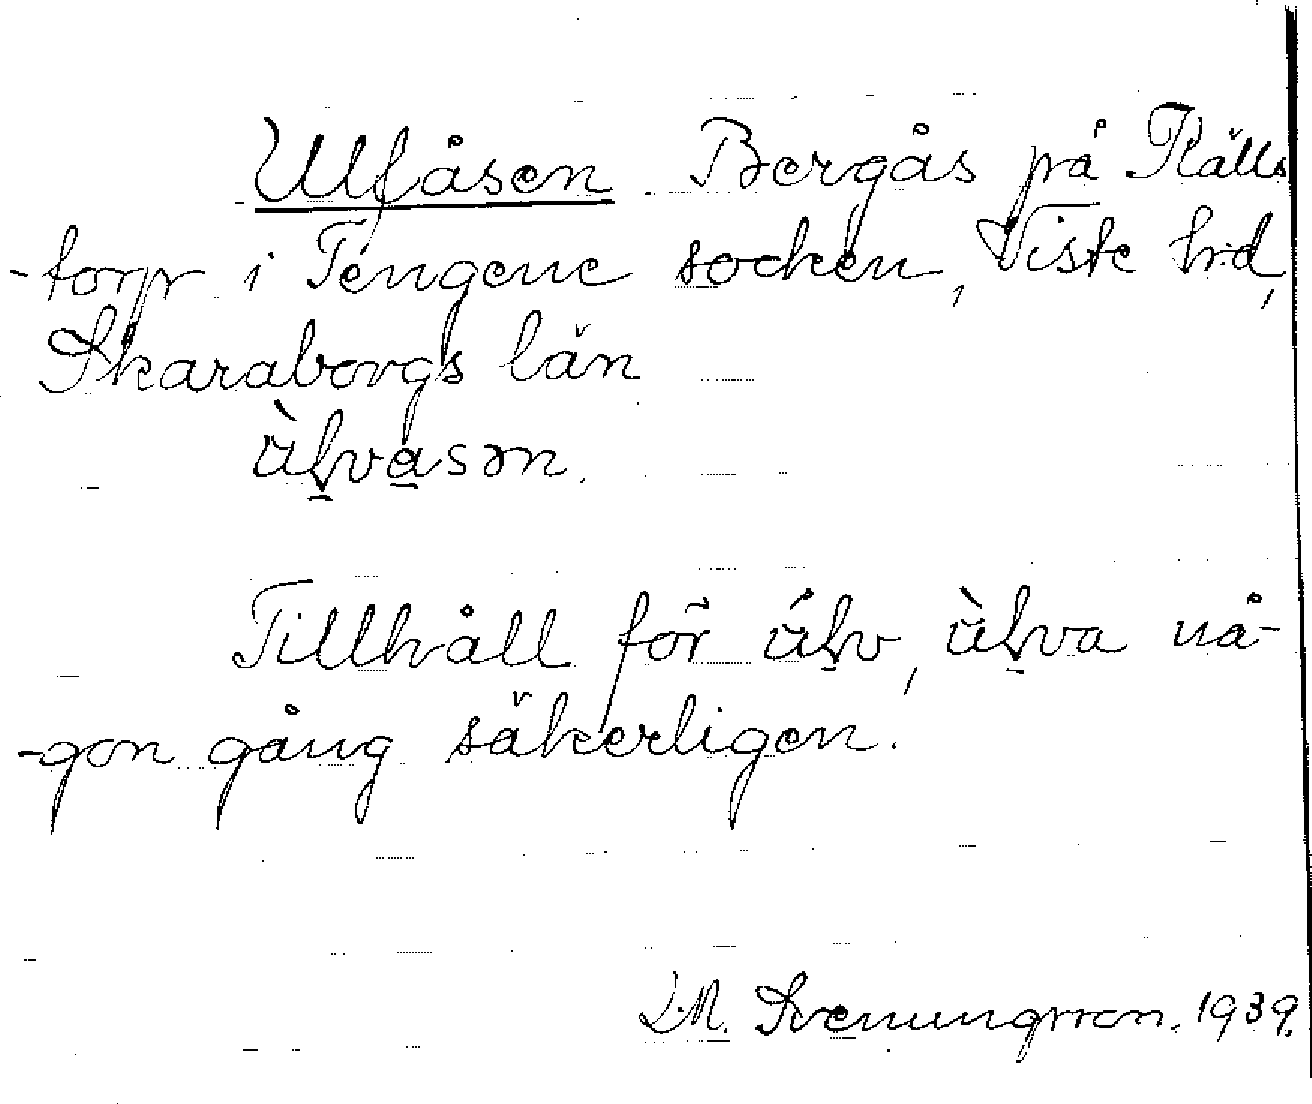 Ulfåsen Bergås på Källs
-torp i Tengene socken, Viste hrd,
Skaraborgs län
ùḻva̱sən.
Tillhåll för úḻv, ùḻva nå-
-gon gång säkerligen.
L.M. Svenungsson. 1939.